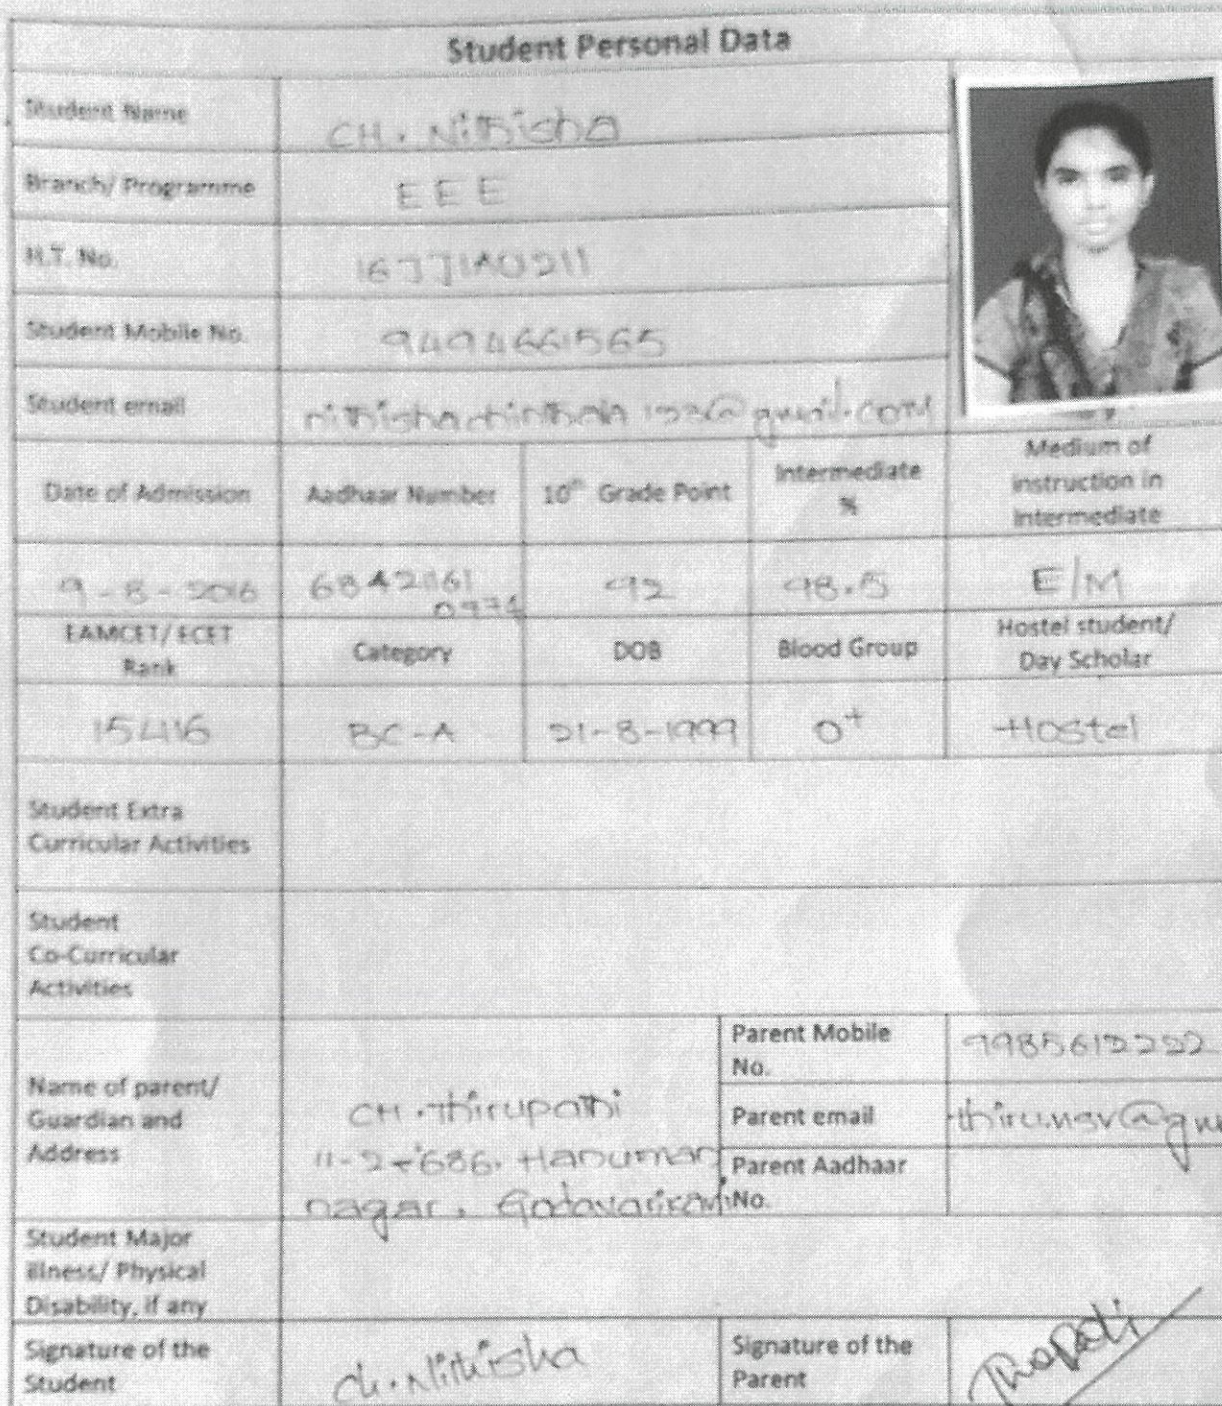 Student Personal Data
Student Name
CH. Nithisha
Branch/ Programme
EEE
H.T. No.
16JJ1A0211
Student Mobile No.
9494661565
Student email
@gmail.com
Date of Admission
Aadhaar Number
10th Grade Point
Intermediate
%
Medium of
instruction in
Intermediate
9-8-2016
68421161
92
98.5
E/M
EAMCET/ ECET
Rank
Category
DOB
Blood Group
Hostel student/
Day Scholar
15416
BC-A
21-8-1999
O+
Hostel
Student Extra
Curricular Activities
Student
Co-Curricular
Activities
Name of parent/
Guardian and
Address
CH. Thirupathi
11-2-686, Hanuman
nagar, Godavarikhani
Parent Mobile
No.
9985612222
Parent email
thiru.nsv@gm
Parent Aadhaar
No.
Student Major
illness/ Physical
Disability, if any
Signature of the
Student
Ch. Nithisha
Signature of the
Parent